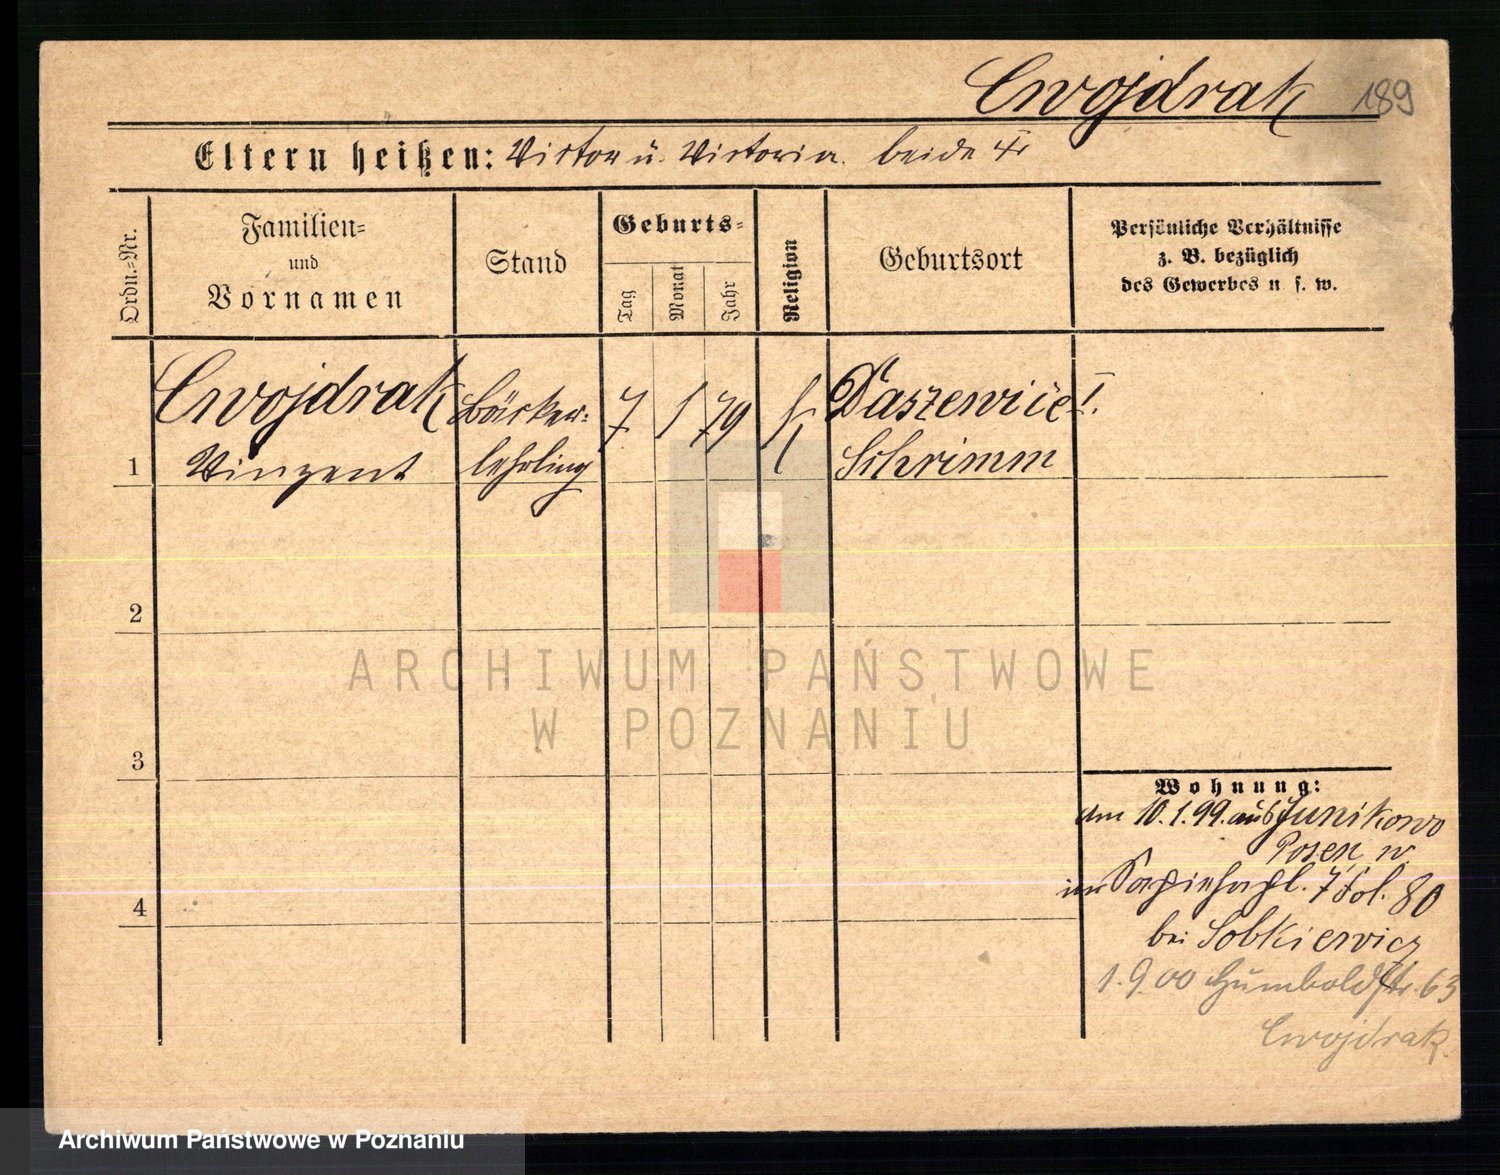 Cwojdrak 189
Eltern heißen: Victor u. Victoria. beide
Ordn.-Nr.
Familien-
und
Vornamen
Stand
Geburts-
Tag
Monat
Jahr
Religion
Geburtsort
Persönliche Verhältnisse
z. B. bezüglich
des Gewerbes u s. w.
Cwojdrak Bäcker- 7 1 79 K Daszewice I.
1 Vinzent lehrling Schrimm
2
3
4
Wohnung:
am 10.1.99. aus Junikowo
Posen w.
7 Fol. 80
bei Sobkiewicz
1.9.00 Humboldstr. 63
Cwojdrak.
ARCHIWUM PAŃSTWOWE
W POZNANIU
Archiwum Państwowe w Poznaniu